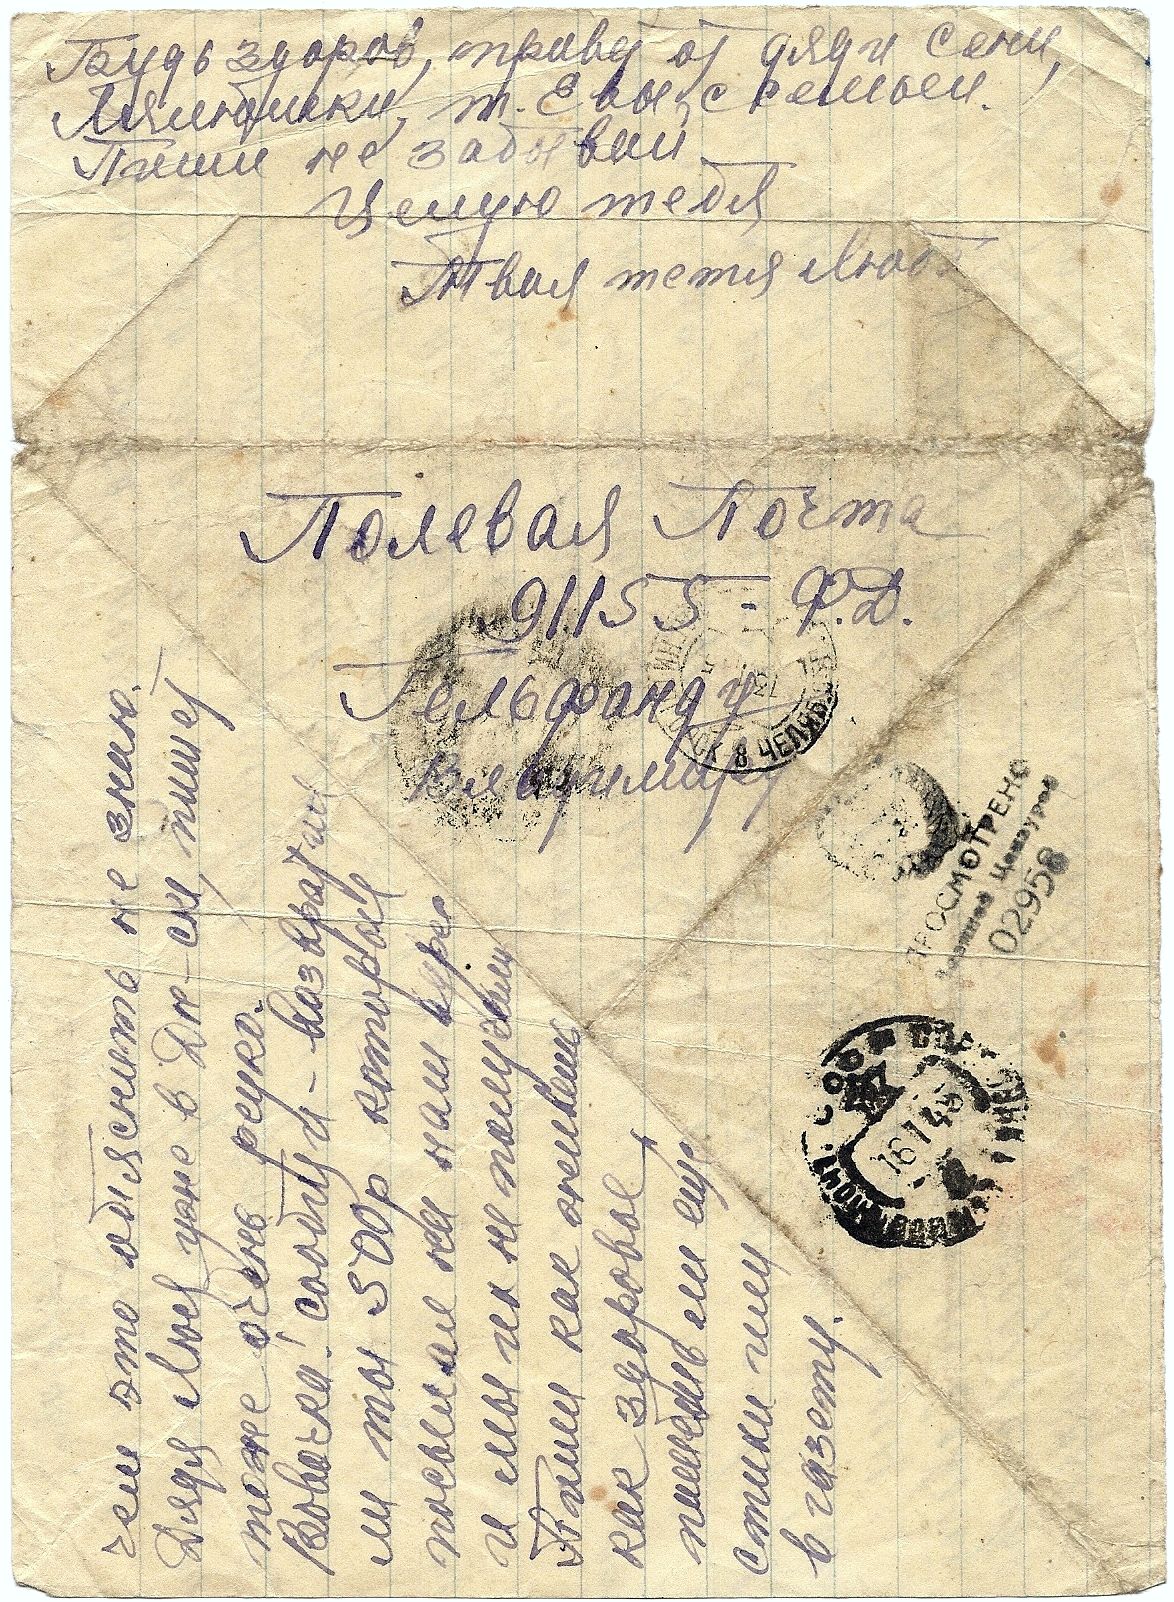 Будь здоров, привет от дяди Сени,
т. Евы, с семьей.
Пиши не забывай
Целую тебя
Твоя тетя Люба
Полевая Почта
91155 - Ф.Д.
Гельфанду
Владимиру
8 ЧЕЛЯБ.
ПРОСМОТРЕНО
Военной Цензурой
02958
16 1 45
чем это объяснить не знаю.
Дядя Люся уже в Дн-ске, пишет
тоже очень редко.
Вовочка! сообщи - возврати
ли ты 500р которые
посылал
и мы их не получили
Пиши как живешь
как здоровье
пишешь ли еще
стихи или
в газету.